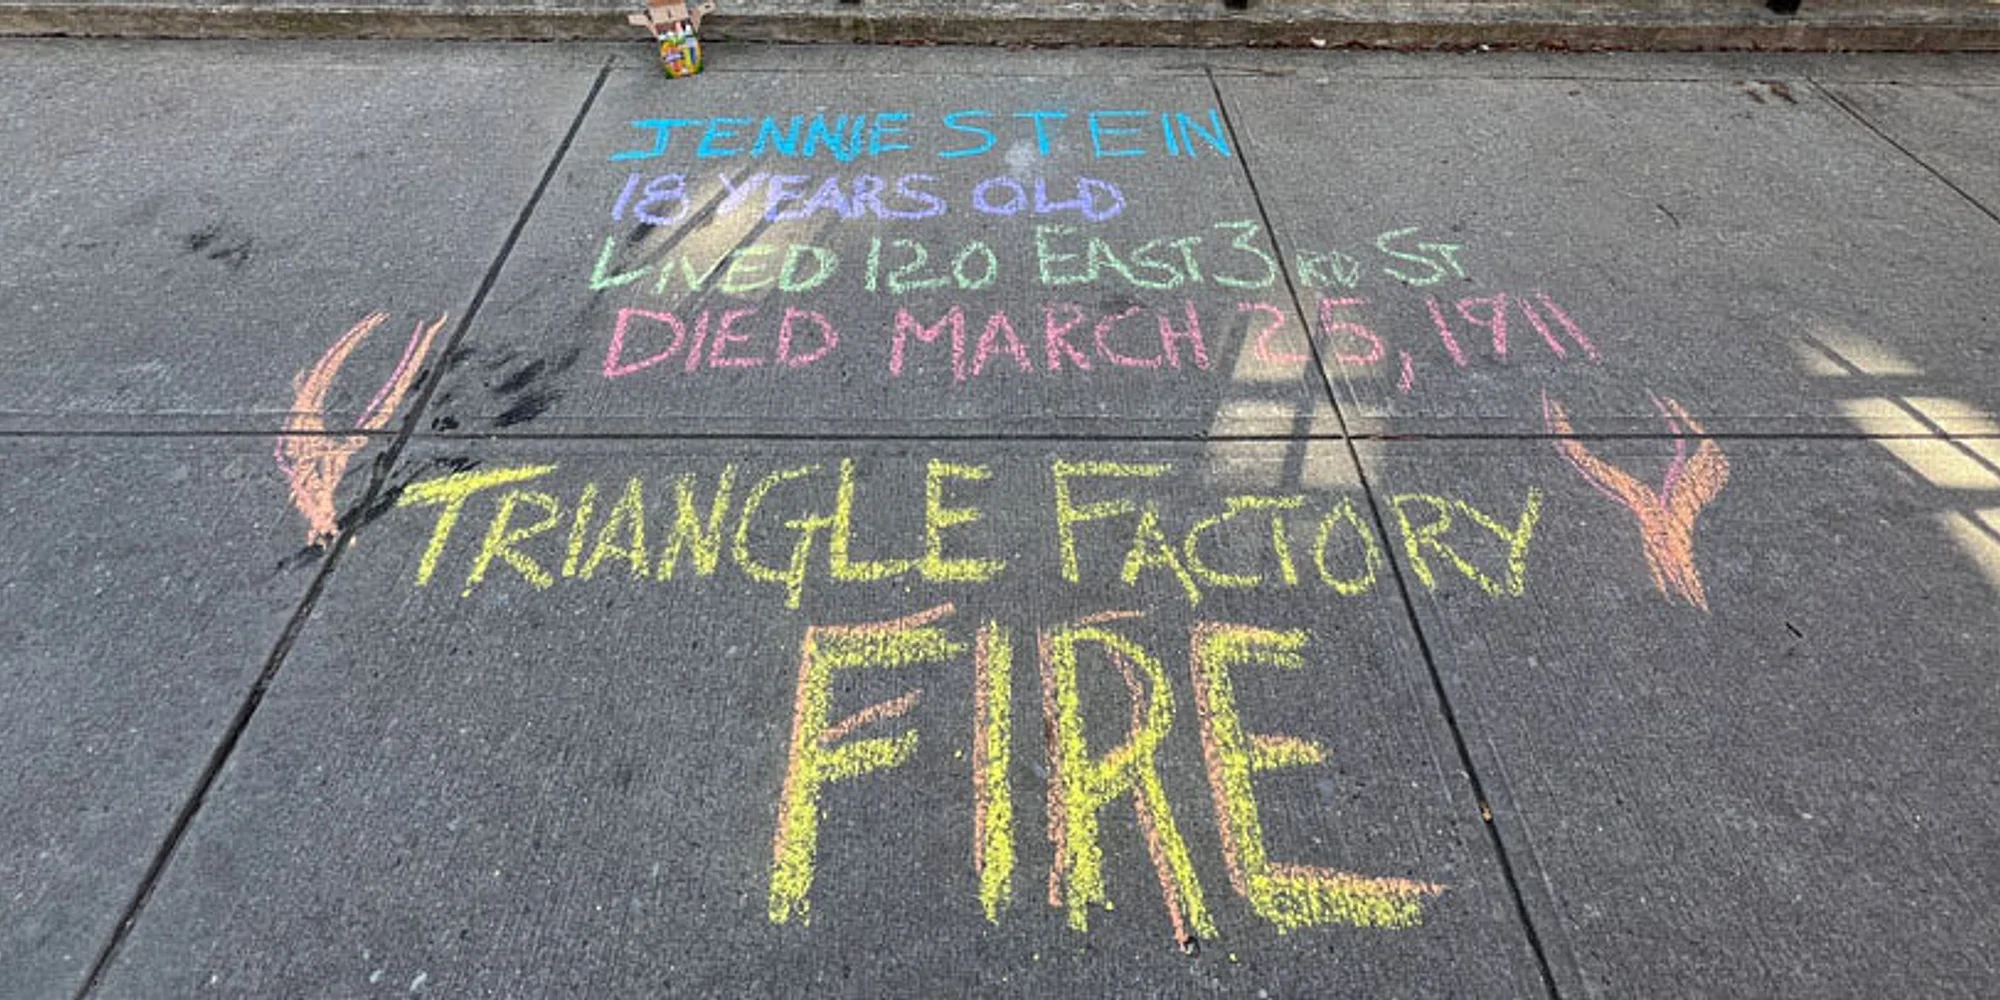 JENNIE STEIN
18 YEARS OLD
LIVED 120 EAST 3RD ST
DIED MARCH 25, 1911
TRIANGLE FACTORY
FIRE